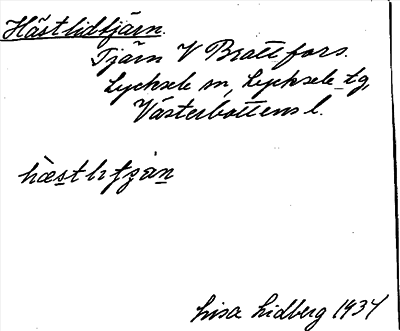 Hästlidtjärn.
Tjärn V Brattfors.
Lycksele sn, Lycksele tg,
Västerbottens l.
hæ̀stlitjạ̈n
Lisa Lidberg 1934